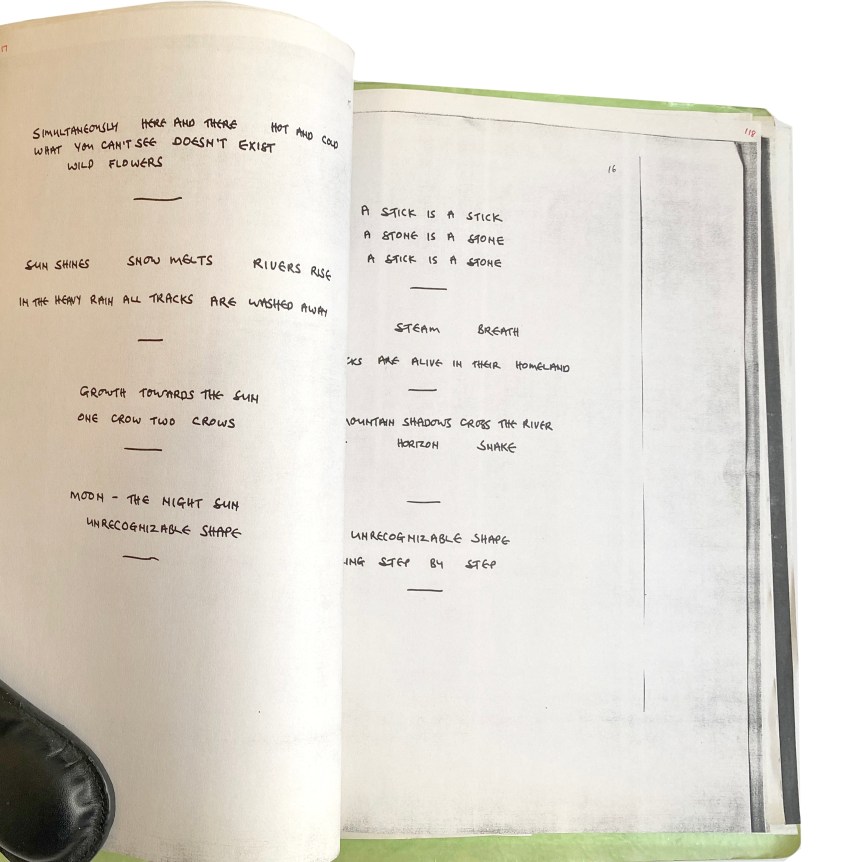 17
SIMULTANEOUSLY HERE AND THERE HOT AND COLD
WHAT YOU CAN'T SEE DOESN'T EXIST
WILD FLOWERS
SUN SHINES SNOW MELTS RIVERS RISE
IN THE HEAVY RAIN ALL TRACKS ARE WASHED AWAY
GROWTH TOWARDS THE SUN
ONE CROW TWO CROWS
MOON - THE NIGHT SUN
UNRECOGNIZABLE SHAPE
118
16
A STICK IS A STICK
A STONE IS A STONE
A STICK IS A STONE
STEAM BREATH
CKS ARE ALIVE IN THEIR HOMELAND
OUNTAIN SHADOWS CROSS THE RIVER
HORIZON SNAKE
UNRECOGNIZABLE SHAPE
ING STEP BY STEP